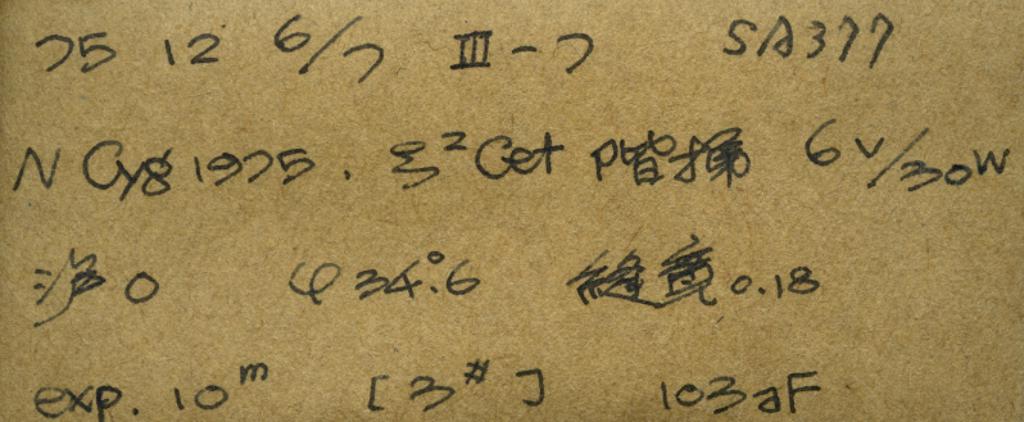 75 12 6/7 III-7 SA377
N Cyg 1975. ξ² Cet 阶梯 6V/30W
沪 0 φ 34°.6 缝宽 0.18
exp. 10ᵐ [3#] 103aF